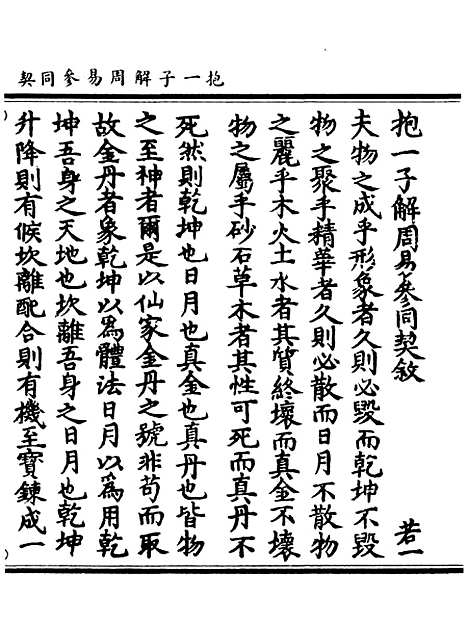 抱一子解周易參同契
抱一子解周易參同契敘 若一
夫物之成乎形象者久則必毀而乾坤不毀
物之聚乎精華者久則必散而日月不散物
之麗乎木火土水者其質終壞而真金不壞
物之屬乎砂石草木者其性可死而真丹不
死然則乾坤也日月也真金也真丹也皆物
之至神者爾是以仙家金丹之號非苟而取
故金丹者象乾坤以為體法日月以為用乾
坤吾身之天地也坎離吾身之日月也乾坤
升降則有候坎離配合則有機至寶鍊成一